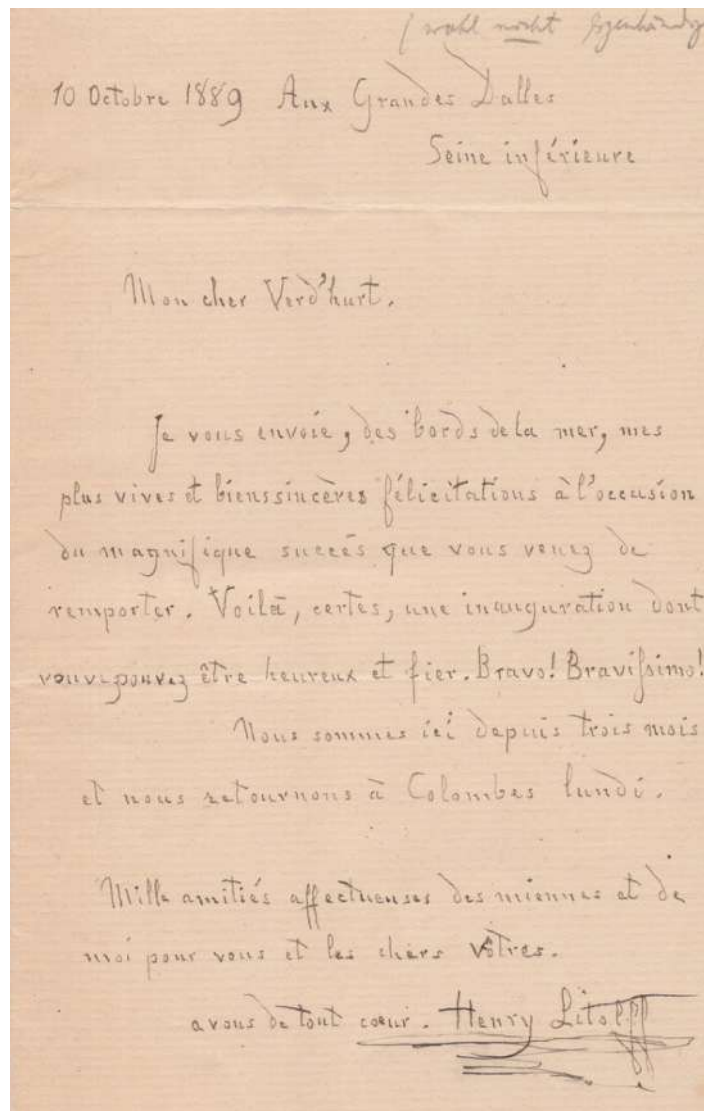 (wohl nicht Eigenhändig
10 Octobre 1889 Aux Grandes Dalles
Seine inférieure
Mon cher Verd'hurt.
Je vous envoie, des bords de la mer, mes
plus vives et bienssincères félicitations à l'occasion
du magnifique succès que vous venez de
remporter. Voilà, certes, une inauguration dont
vous pouvez être heureux et fier. Bravo! Bravissimo!
Nous sommes ici depuis trois mois
et nous retournons à Colombes lundi.
Mille amitiés affectueuses des miennes et de
moi pour vous et les chers vôtres.
a vous de tout cœur. Henry Litolff